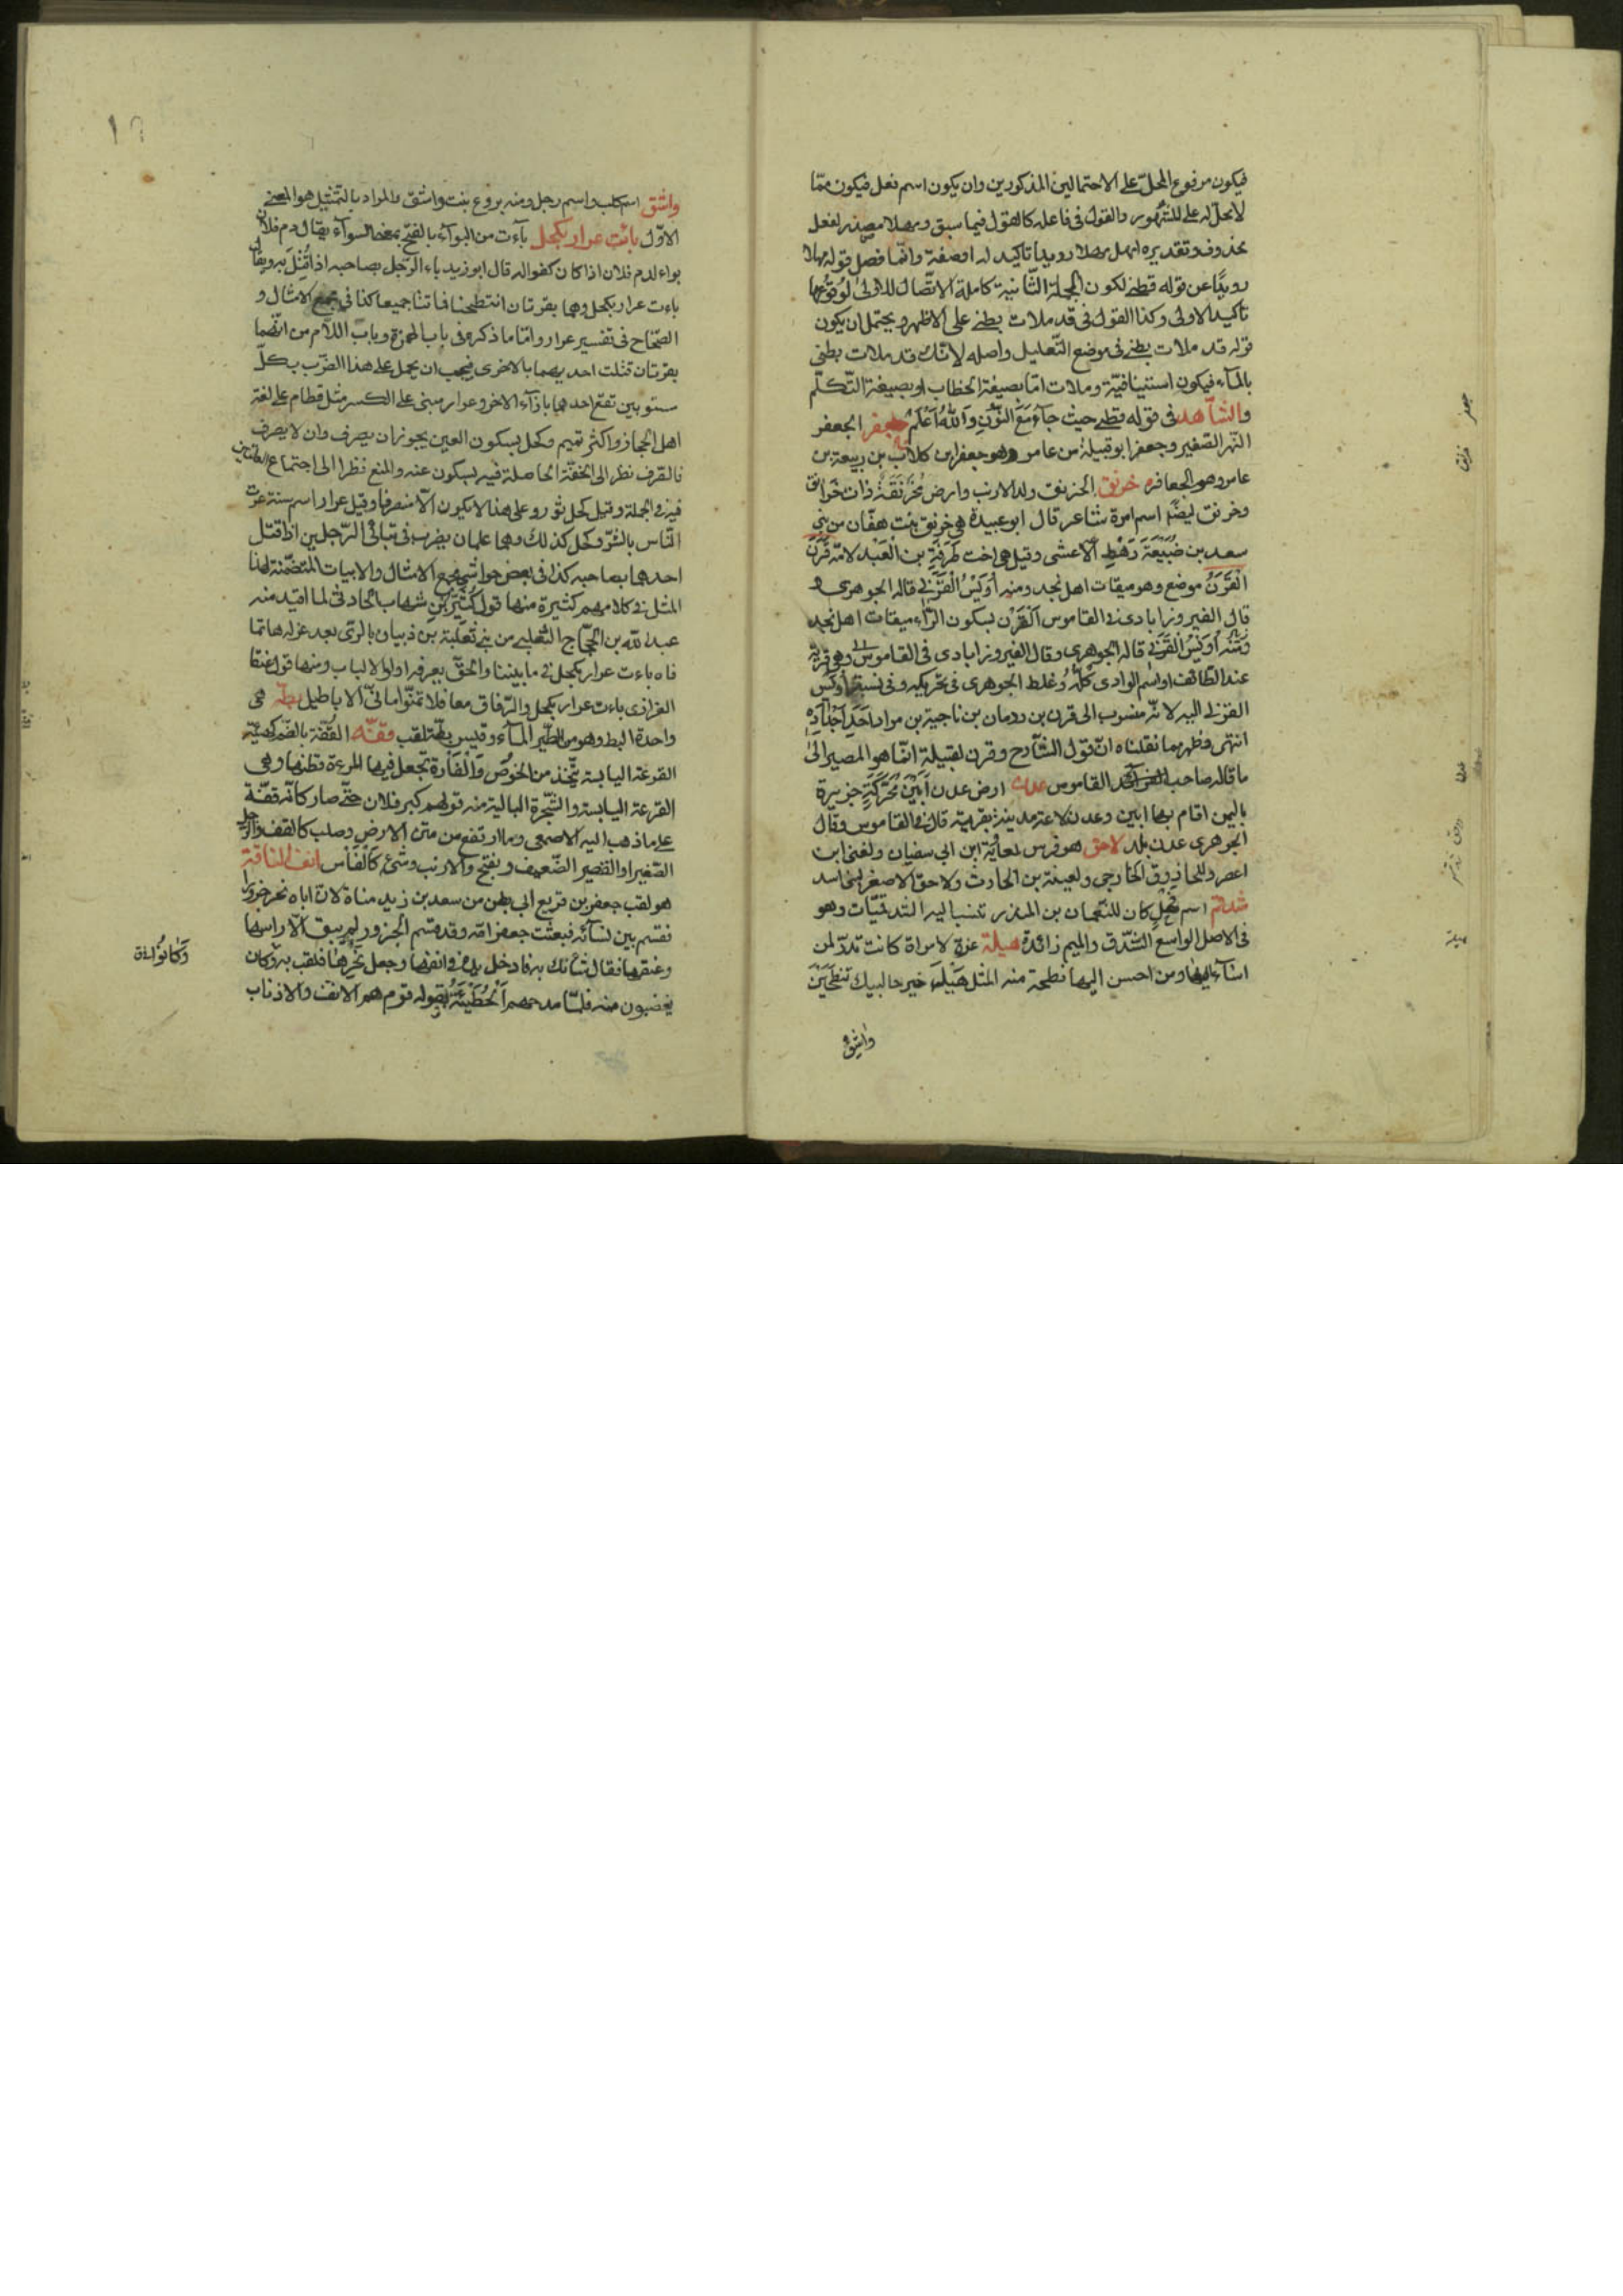 فيكون مرفوع المحل على الاحتمالين المذكورين وان يكون اسم فعل فيكون ممّا
لا محلّ له على المشهور والقول فى فاعله كالقول فيما سبق ومهلا مصدر لفعل
محذوف وتقديره امهل مهلا رويدا تاكيد له او صفة وانّما فصل قوله مهلا
رويدًا عن قوله قطنى لكون الجملة الثّانية كاملة الاتّصال للاولى لوقوعها
تاكيد الاولى وكذا القول فى قد ملات بطنى على الاظهر ويحتمل ان يكون
قوله قد ملات بطنى فى موضع التّعليل واصله لانّك قد ملات بطنى
بالمآء فيكون استينافيّة وملات امّا بصيغة الخطاب او بصيغة التّكلّم
والشّاهد فى قوله قطنى حيث جآء مَعَ النّون وَاللّهُ اَعْلَمُ جعفر الجعفر
النّهر الصّغير وجعفر ابو قبيلة من عامر وهو جعفر ابن كلاب بن ربيعة بن
عامر وهم الجعافره خرنق الخرنق ولد الارنب وارض مُخَرْنَقَة ذات خَرَانق
وخرنق ايضًا اسم امرة شاعر قال ابو عبيدة هى خرنق بنت هفّان من بنى
سعد بن ضُبَيْعَةَ رَهْطِ الاعشى وقيل هى اخت طَرَفَةِ بن الْعَبْد لامّه قَرَنَ
الْقَرَنُ موضع وهو ميقات اهل نجد ومنه اُوَيْسُ الْقَرَنِى قاله الجوهرى و
قال الفيروزابادى فى القاموس القَرْن بسكون الرّاء ميقات اهل نجد
ومنه اويس القَرَنِى قاله الجوهرى وقال الفيروزابادى فى القاموس وهى قرية
عند الطّائف او اسم الوادى كلّه وغلط الجوهرى فى تحريكه وفى نسبة اويس
القرنى اليه لانّه منسوب الى قرن بن رومان بن ناجية بن مراد اَحَدِ اَجْدَادِهِ
انتهى وظهر بما نقلناه انّ قول الشّارح وقرن لقبيلة انّما هو المصير الى
ما قاله صاحب القاموس عدن ارض عدن اَبْيَن مُحَرَّكَةٍ جزيرة
باليمن اقام بها ابين وعدن لاعة مدينة بقربه قال فى القاموس وقال
الجوهرى عدن بلد لاحق هو فرس لمعاوية ابن ابى سفيان ولغنى ابن
اعصر وللحازوق الخارجى ولعيينة بن الحارث ولاحق الاصغر لبنى اسد
شدقم اسم فحل كان للنّعمان بن المنذر تنسب اليه الشّدقميّات وهو
فى الاصل الواسع الشّدق والميم زائدة هيلة عنزة لامراة كانت تدرّ لمن
اسآء اليها ومن احسن اليها نطحته منه المثل هَيْلَه خير حالبيك تنطحين
واشق
جعفر
خرنق
هيلة
واشق اسم كلب واسم رجل ومنه بروع بنت واشق والمراد بالتّمثيل هو المعنى
الاوّل بائت عرار بكحل بآءت من البوآء بالفتح بمعنى السوآء يقال دم فلان
بواء لدم فلان اذا كان كفوا له قال ابو زيد باء الرّجل بصاحبه اذا قُتِلَ به ويقال
باءت عرار بكحل وهما بقرتان انتطحتا فماتتا جميعا كذا فى مجمع الامثال و
الصّحاح فى تفسير عرار وامّا ما ذكره فى باب الهمزة وباب اللّام من انّهما
بقرتان قتلت احديهما بالاخرى فيجب ان يحمل على هذا الضّرب بكلّ
ستوبين تقع احدهما بازآء الاخر وعرار مبنى على الكسر مثل قطام على لغة
اهل الحجاز واكثر تميم وكحل بسكون العين يجوز ان يصرف وان لا يصرف
فالصّرف نظر الى الخفّة الحاصلة فيه بسكون عنه والمنع نظرا الى اجتماع العلّتين
فيه فى الجملة وقيل كحل ثور وعلى هذا لا يكون الّا منصرفا وقيل عرار اسم سنة عرّت
النّاس بالشّرّ وكحل كذلك وهما علمان يضرب فى تباقى الرّجلين اذا قتل
احدهما بصاحبه كذا فى بعض حواشى مجمع الامثال والابيات المتضمّنة لهذا
المثل فى كلامهم كثيرة منها قول كُثَيّرِ بْنِ شهاب الحارثى لما اقيد منه
عبد اللّه بن الحجّاج الثعلبى من بنى ثعلبة بن ذبيان بالرّى بعد عزله هاتما
فاه باءت عرار بكحل فى ما بيننا والحقّ يعرفه اولوا الالباب ومنها قول عنقا
الفزارى باءت عرار بكحل والرّفاق معا فلا تمنّوا امانىّ الاباطيل بطّة هى
واحدة البط وهو من الطّير المآء وقيس بطّة لقب قفّه القُفّة بالضّم كهيئة
القرعة اليابسة تتّخذ من الخوص وَالْفَارة تجعل فيها المرءة قطنها وهى
القرعة اليابسة والشّجرة البالية منه قولهم كبر فلان حتّى صار كانّه قفّة
على ما ذهب اليه الاصمعى وما ارتفع من متن الارض وصلب كالقفّ والرّجل
الصّغير او القصير الضّعيف ويفتح والارنب وشئ كالفاس انف النّاقة
هو لقب جعفر بن قريع ابى بطن من سعد بن زيد مناة لانّ اباه نحر جزورا
فقسم بين نسآئه فبعثت جعفر امّه وقد قسم الجزور لم يبق الّا راسها
وعنقها فقال شانك به فادخل يده فى انفها وجعل يجرّها فلقب به وكان
يغضبون منه فلمّا مدحهم اَلْحُطَيْئَةُ بقوله قوم هم الانف والاذناب
وَكَانُوا